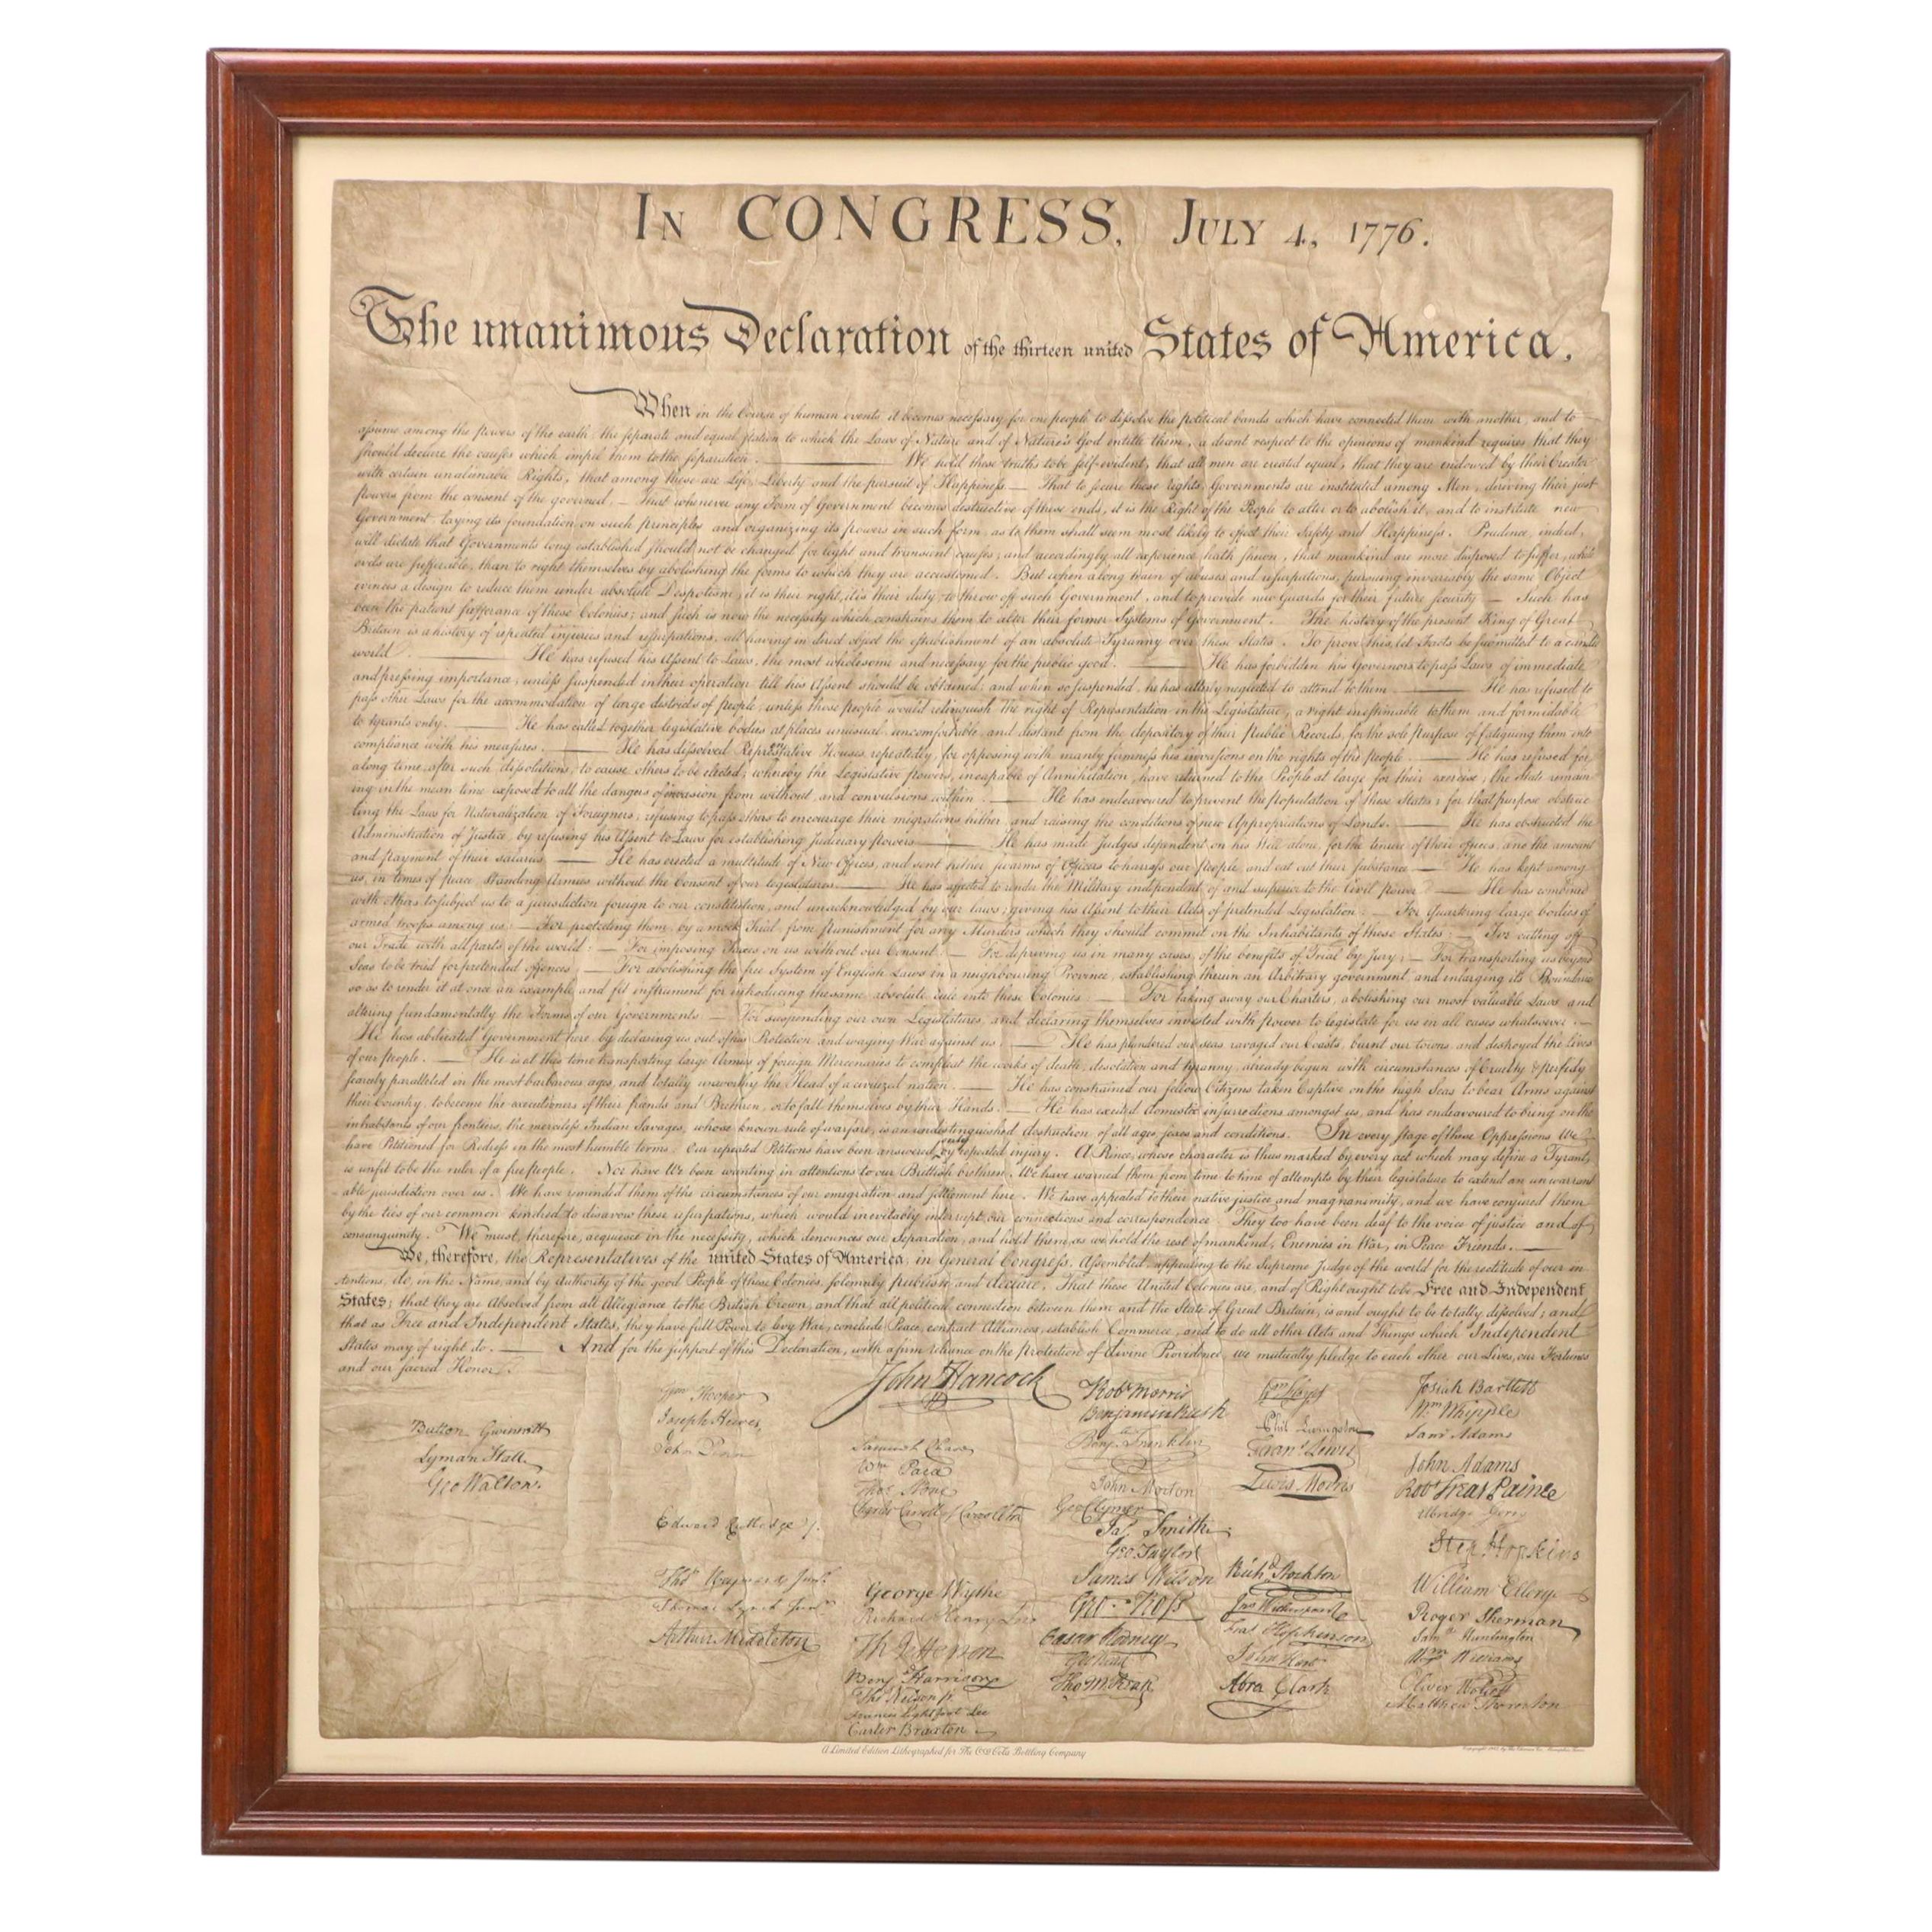 IN CONGRESS, JULY 4, 1776.
The unanimous Declaration of the thirteen united States of America.
When in the Course of human events it becomes necessary for one people to dissolve the political bands which have connected them with another, and to
assume among the powers of the earth, the separate and equal station to which the Laws of Nature and of Nature's God entitle them, a decent respect to the opinions of mankind requires that they
should declare the causes which impel them to the separation. — We hold these truths to be self-evident, that all men are created equal, that they are endowed by their Creator
with certain unalienable Rights, that among these are Life, Liberty and the pursuit of Happiness — That to secure these rights, Governments are instituted among Men, deriving their just
powers from the consent of the governed, — That whenever any Form of Government becomes destructive of these ends, it is the Right of the People to alter or to abolish it, and to institute new
Government, laying its foundation on such principles and organizing its powers in such form, as to them shall seem most likely to effect their Safety and Happiness. Prudence, indeed,
will dictate that Governments long established should not be changed for light and transient causes; and accordingly all experience hath shewn, that mankind are more disposed to suffer, while
evils are sufferable, than to right themselves by abolishing the forms to which they are accustomed. But when a long train of abuses and usurpations, pursuing invariably the same Object
evinces a design to reduce them under absolute Despotism, it is their right, it is their duty, to throw off such Government, and to provide new Guards for their future security — Such has
been the patient sufferance of these Colonies; and such is now the necessity which constrains them to alter their former Systems of Government. The history of the present King of Great
Britain is a history of repeated injuries and usurpations, all having in direct object the establishment of an absolute Tyranny over these States. To prove this, let Facts be submitted to a candid
world. — He has refused his Assent to Laws, the most wholesome and necessary for the public good. — He has forbidden his Governors to pass Laws of immediate
and pressing importance, unless suspended in their operation till his Assent should be obtained; and when so suspended, he has utterly neglected to attend to them. — He has refused to
pass other Laws for the accommodation of large districts of people, unless those people would relinquish the right of Representation in the Legislature, a right inestimable to them and formidable
to tyrants only. — He has called together legislative bodies at places unusual, uncomfortable, and distant from the depository of their public Records, for the sole purpose of fatiguing them into
compliance with his measures. — He has dissolved Representative Houses repeatedly, for opposing with manly firmness his invasions on the rights of the people. — He has refused for
a long time, after such dissolutions, to cause others to be elected; whereby the Legislative powers, incapable of Annihilation, have returned to the People at large for their exercise; the State remain
ing in the mean time exposed to all the dangers of invasion from without, and convulsions within. — He has endeavoured to prevent the population of these States; for that purpose obstruc
ting the Laws for Naturalization of Foreigners; refusing to pass others to encourage their migrations hither, and raising the conditions of new Appropriations of Lands. — He has obstructed the
Administration of Justice, by refusing his Assent to Laws for establishing Judiciary powers — He has made Judges dependent on his Will alone, for the tenure of their offices, and the amount
and payment of their salaries. — He has erected a multitude of New Offices, and sent hither swarms of Officers to harrass our people, and eat out their substance — He has kept among
us, in times of peace, Standing Armies without the Consent of our legislatures. — He has affected to render the Military independent of and superior to the Civil power. — He has combined
with others to subject us to a jurisdiction foreign to our constitution, and unacknowledged by our laws; giving his Assent to their Acts of pretended Legislation: — For Quartering large bodies of
armed troops among us: — For protecting them, by a mock Trial, from punishment for any Murders which they should commit on the Inhabitants of these States: — For cutting off
our Trade with all parts of the world: — For imposing Taxes on us without our Consent: — For depriving us in many cases, of the benefits of Trial by Jury: — For transporting us beyond
Seas to be tried for pretended offences — For abolishing the free System of English Laws in a neighbouring Province, establishing therein an Arbitrary government, and enlarging its Boundaries
so as to render it at once an example and fit instrument for introducing the same absolute rule into these Colonies — For taking away our Charters, abolishing our most valuable Laws, and
altering fundamentally the Forms of our Governments — For suspending our own Legislatures, and declaring themselves invested with power to legislate for us in all cases whatsoever. —
He has abdicated Government here, by declaring us out of his Protection and waging War against us. — He has plundered our seas, ravaged our Coasts, burnt our towns, and destroyed the lives
of our people. — He is at this time transporting large Armies of foreign Mercenaries to compleat the works of death, desolation and tyranny, already begun with circumstances of Cruelty & perfidy
scarcely paralleled in the most barbarous ages, and totally unworthy the Head of a civilized nation. — He has constrained our fellow Citizens taken Captive on the high Seas to bear Arms against
their Country, to become the executioners of their friends and Brethren, or to fall themselves by their Hands. — He has excited domestic insurrections amongst us, and has endeavoured to bring on the
inhabitants of our frontiers, the merciless Indian Savages, whose known rule of warfare, is an undistinguished destruction of all ages, sexes and conditions. In every stage of these Oppressions We
have Petitioned for Redress in the most humble terms: Our repeated Petitions have been answered only by repeated injury. A Prince, whose character is thus marked by every act which may define a Tyrant,
is unfit to be the ruler of a free people. Nor have We been wanting in attentions to our Brittish brethren. We have warned them from time to time of attempts by their legislature to extend an unwarrant
able jurisdiction over us. We have reminded them of the circumstances of our emigration and settlement here. We have appealed to their native justice and magnanimity, and we have conjured them
by the ties of our common kindred to disavow these usurpations, which would inevitably interrupt our connections and correspondence They too have been deaf to the voice of justice and of
consanguinity. We must, therefore, acquiesce in the necessity, which denounces our Separation, and hold them, as we hold the rest of mankind, Enemies in War, in Peace Friends. —
We, therefore, the Representatives of the united States of America, in General Congress, Assembled, appealing to the Supreme Judge of the world for the rectitude of our in
tentions, do, in the Name, and by Authority of the good People of these Colonies, solemnly publish and declare, That these United Colonies are, and of Right ought to be Free and Independent
States; that they are Absolved from all Allegiance to the British Crown, and that all political connection between them and the State of Great Britain, is and ought to be totally dissolved; and
that as Free and Independent States, they have full Power to levy War, conclude Peace, contract Alliances, establish Commerce, and to do all other Acts and Things which Independent
States may of right do. — And for the support of this Declaration, with a firm reliance on the protection of divine Providence, we mutually pledge to each other our Lives, our Fortunes
and our sacred Honor.
Button Gwinnett
Lyman Hall
Geo Walton.
Wm Hooper
Joseph Hewes,
John Penn
Edward Rutledge /.
Thos Heyward Junr.
Thomas Lynch Junr.
Arthur Middleton
John Hancock
Samuel Chase
Wm Paca
Thos Stone
Charles Carroll of Carrollton
George Wythe
Richard Henry Lee
Th Jefferson
Benj Harrison
Thos Nelson jr.
Francis Lightfoot Lee
Carter Braxton
Robt Morris
Benjamin Rush
Benj. Franklin
John Morton
Geo Clymer
Jas. Smith
Geo. Taylor
James Wilson
Geo. Ross
Caesar Rodney
Geo Read
Tho M:Kean
Wm Floyd
Phil. Livingston
Frans. Lewis
Lewis Morris
Richd. Stockton
Jno Witherspoon
Fras. Hopkinson
John Hart
Abra Clark
Josiah Bartlett
Wm Whipple
Saml Adams
John Adams
Robt Treat Paine
Elbridge Gerry
Step. Hopkins
William Ellery
Roger Sherman
Saml Huntington
Wm Williams
Oliver Wolcott
Matthew Thornton
A Limited Edition Lithographed for The Coca Cola Bottling Company